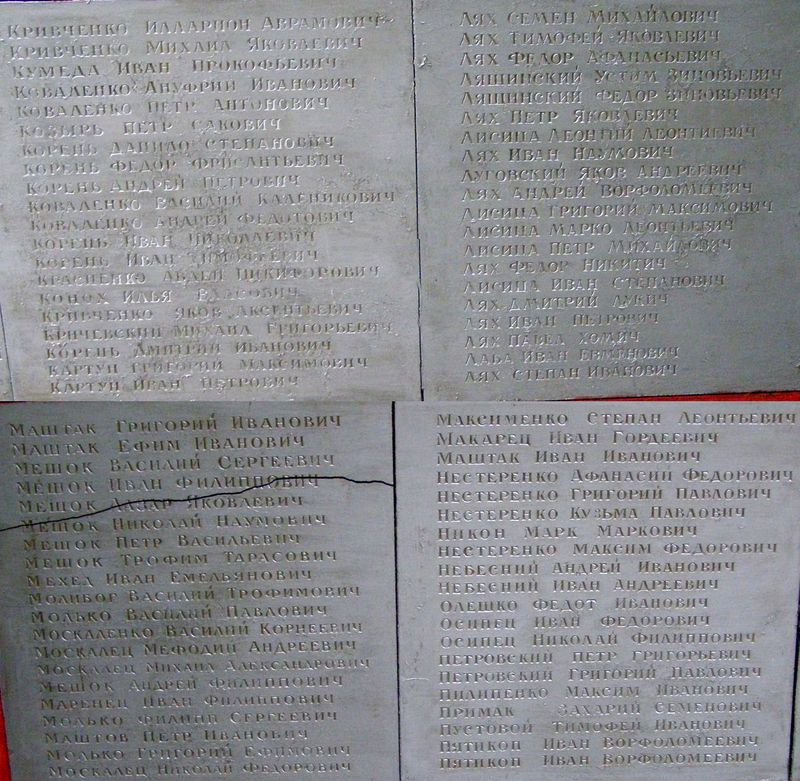 Кривченко Илларион Аврамович
Кривченко Михаил Яковлевич
Кумеда Иван Прокофьевич
Коваленко Ануфрий Иванович
Коваленко Петр Антонович
Козырь Петр Сакович
Корень Данило Степанович
Корень Федор
Корень Андрей Петрович
Коваленко Василий Каленикович
Коваленко Андрей Федотович
Корень Иван Николаевич
Корень Иван Тимофеевич
Красненко Авдей Никифорович
Конох Илья Власович
Кривченко Яков Аксентьевич
Кричевский Михаил Григорьевич
Корень Дмитрий Иванович
Картун Григорий Максимович
Картун Иван Петрович
Лях Семен Михайлович
Лях Тимофей Яковлевич
Лях Федор Афанасьевич
Лящинский Устим Зиновьевич
Лящинский Федор Зиновьевич
Лях Петр Яковлевич
Лисица Леонтий Леонтиевич
Лях Иван Наумович
Луговский Яков Андреевич
Лях Андрей Ворфоломеевич
Лисица Григорий Максимович
Лисица Марко Леонтьевич
Лисица Петр Михайлович
Лях Федор Никитич
Лисица Иван Степанович
Лях Дмитрий Лукич
Лях Иван Петрович
Лях Павел Хомич
Лаба Иван Евменович
Лях Степан Иванович
Маштак Григорий Иванович
Маштак Ефим Иванович
Мешок Василий Сергеевич
Мешок Иван Филиппович
Мешок Лазар Яковлевич
Мешок Николай Наумович
Мешок Петр Васильевич
Мешок Трофим Тарасович
Мехед Иван Емельянович
Молибог Василий Трофимович
Молько Василий Павлович
Москаленко Василий Корнеевич
Москалец Мефодий Андреевич
Москалец Михаил Александрович
Мешок Андрей Филиппович
Маренец Иван Филиппович
Молько Филипп Сергеевич
Маштов Петр Иванович
Молько Григорий Ефимович
Москалец Николай Федорович
Максименко Степан Леонтьевич
Макарец Иван Гордеевич
Маштак Иван Иванович
Нестеренко Афанасий Федорович
Нестеренко Григорий Павлович
Нестеренко Кузьма Павлович
Никон Марк Маркович
Нестеренко Максим Федорович
Небесний Андрей Иванович
Небесний Иван Андреевич
Олешко Федот Иванович
Осипец Иван Федорович
Осипец Николай Филиппович
Петровский Петр Григорьевич
Петровский Григорий Павлович
Пилипенко Максим Иванович
Примак Захарий Семенович
Пустовой Тимофей Иванович
Пятикоп Иван Ворфоломеевич
Пятикоп Иван Ворфоломеевич